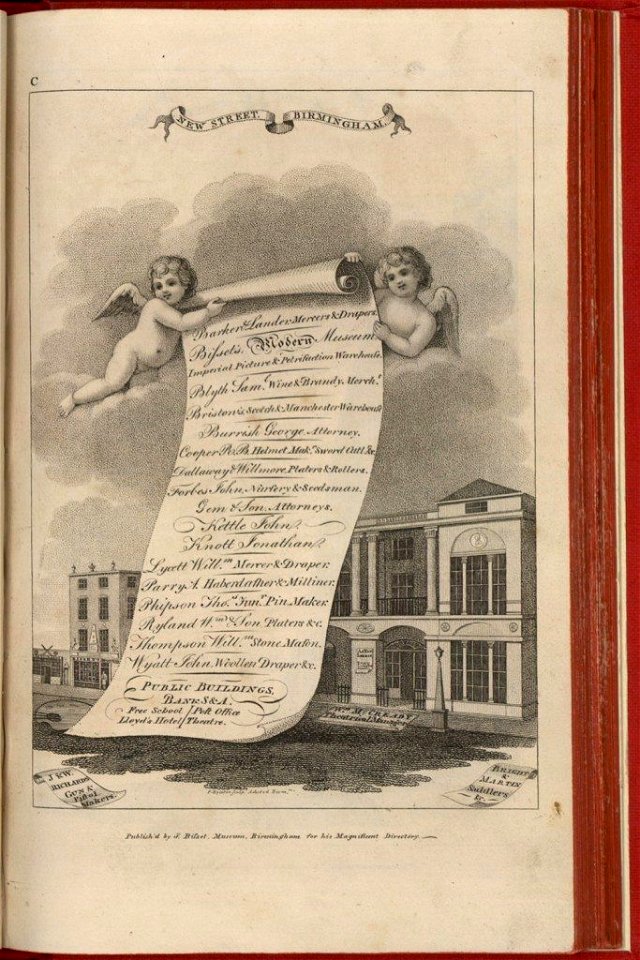 C
NEW STREET. BIRMINGHAM.
Barker & Lander Mercers & Drapers.
Bisset's Modern Museum
Imperial Picture & Petrifaction Warehouse.
Blyth Sam.l Wine & Brandy Merch.t
Briston's Scotch & Manchester Warehouse
Burrish George Attorney.
Cooper R. & B. Helmet Mak.rs Sword Cutl. &c.
Dallaway & Willmore, Platers & Rollers.
Forbes John, Nursery & Seedsman.
Gem & Son, Attorneys.
Kettle John.
Knott Jonathan.
Lycett Will.m Mercer & Draper.
Parry A. Haberdasher & Milliner.
Phipson Tho.s Jun.r Pin Maker.
Ryland W.m & Son, Platers &c.
Thompson Will.m Stone Mason.
Wyatt John, Woollen Draper &c.
PUBLIC BUILDINGS,
BANK S & A.
Free School Post Office
Lloyd's Hotel Theatre.
W.m M.cCREADY
Theatrical
J & W.
RICHARDS
GUN &
Pistol
Makers.
BRIGHT
&
MARTIN
Saddlers
&c.
Publish'd by J. Bisset, Museum, Birmingham for his Magnificent Directory.